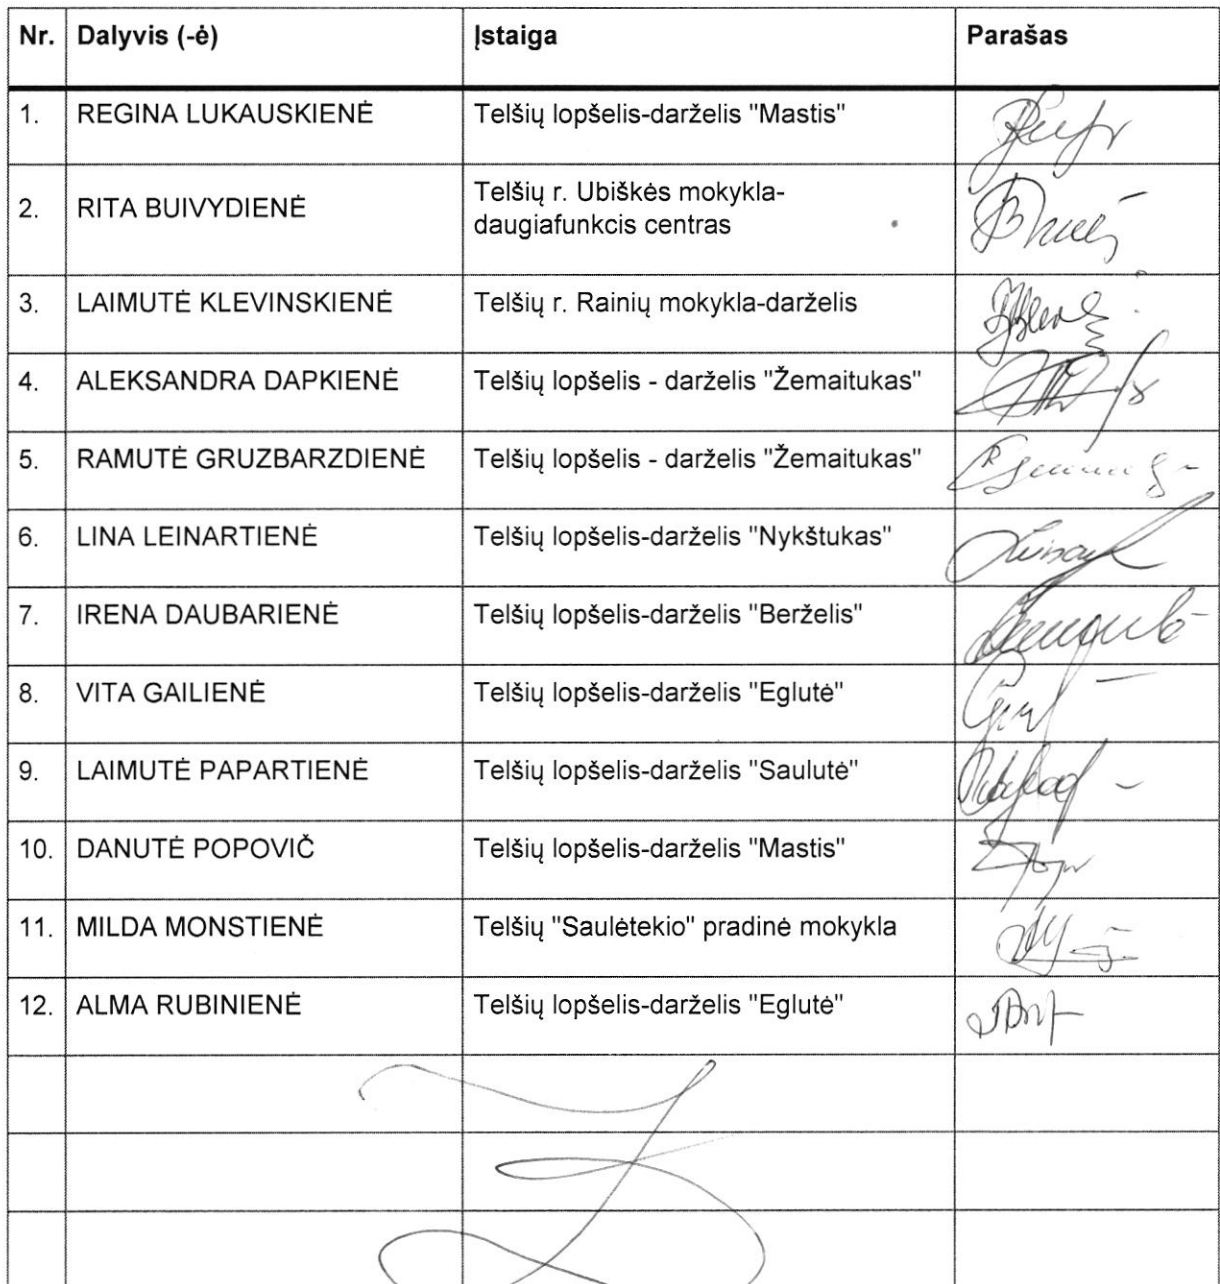 Nr. Dalyvis (-ė) Įstaiga Parašas
1. REGINA LUKAUSKIENĖ Telšių lopšelis-darželis "Mastis"
2. RITA BUIVYDIENĖ Telšių r. Ubiškės mokykla-
daugiafunkcis centras
3. LAIMUTĖ KLEVINSKIENĖ Telšių r. Rainių mokykla-darželis
4. ALEKSANDRA DAPKIENĖ Telšių lopšelis - darželis "Žemaitukas"
5. RAMUTĖ GRUZBARZDIENĖ Telšių lopšelis - darželis "Žemaitukas"
6. LINA LEINARTIENĖ Telšių lopšelis-darželis "Nykštukas"
7. IRENA DAUBARIENĖ Telšių lopšelis-darželis "Berželis"
8. VITA GAILIENĖ Telšių lopšelis-darželis "Eglutė"
9. LAIMUTĖ PAPARTIENĖ Telšių lopšelis-darželis "Saulutė"
10. DANUTĖ POPOVIČ Telšių lopšelis-darželis "Mastis"
11. MILDA MONSTIENĖ Telšių "Saulėtekio" pradinė mokykla
12. ALMA RUBINIENĖ Telšių lopšelis-darželis "Eglutė"